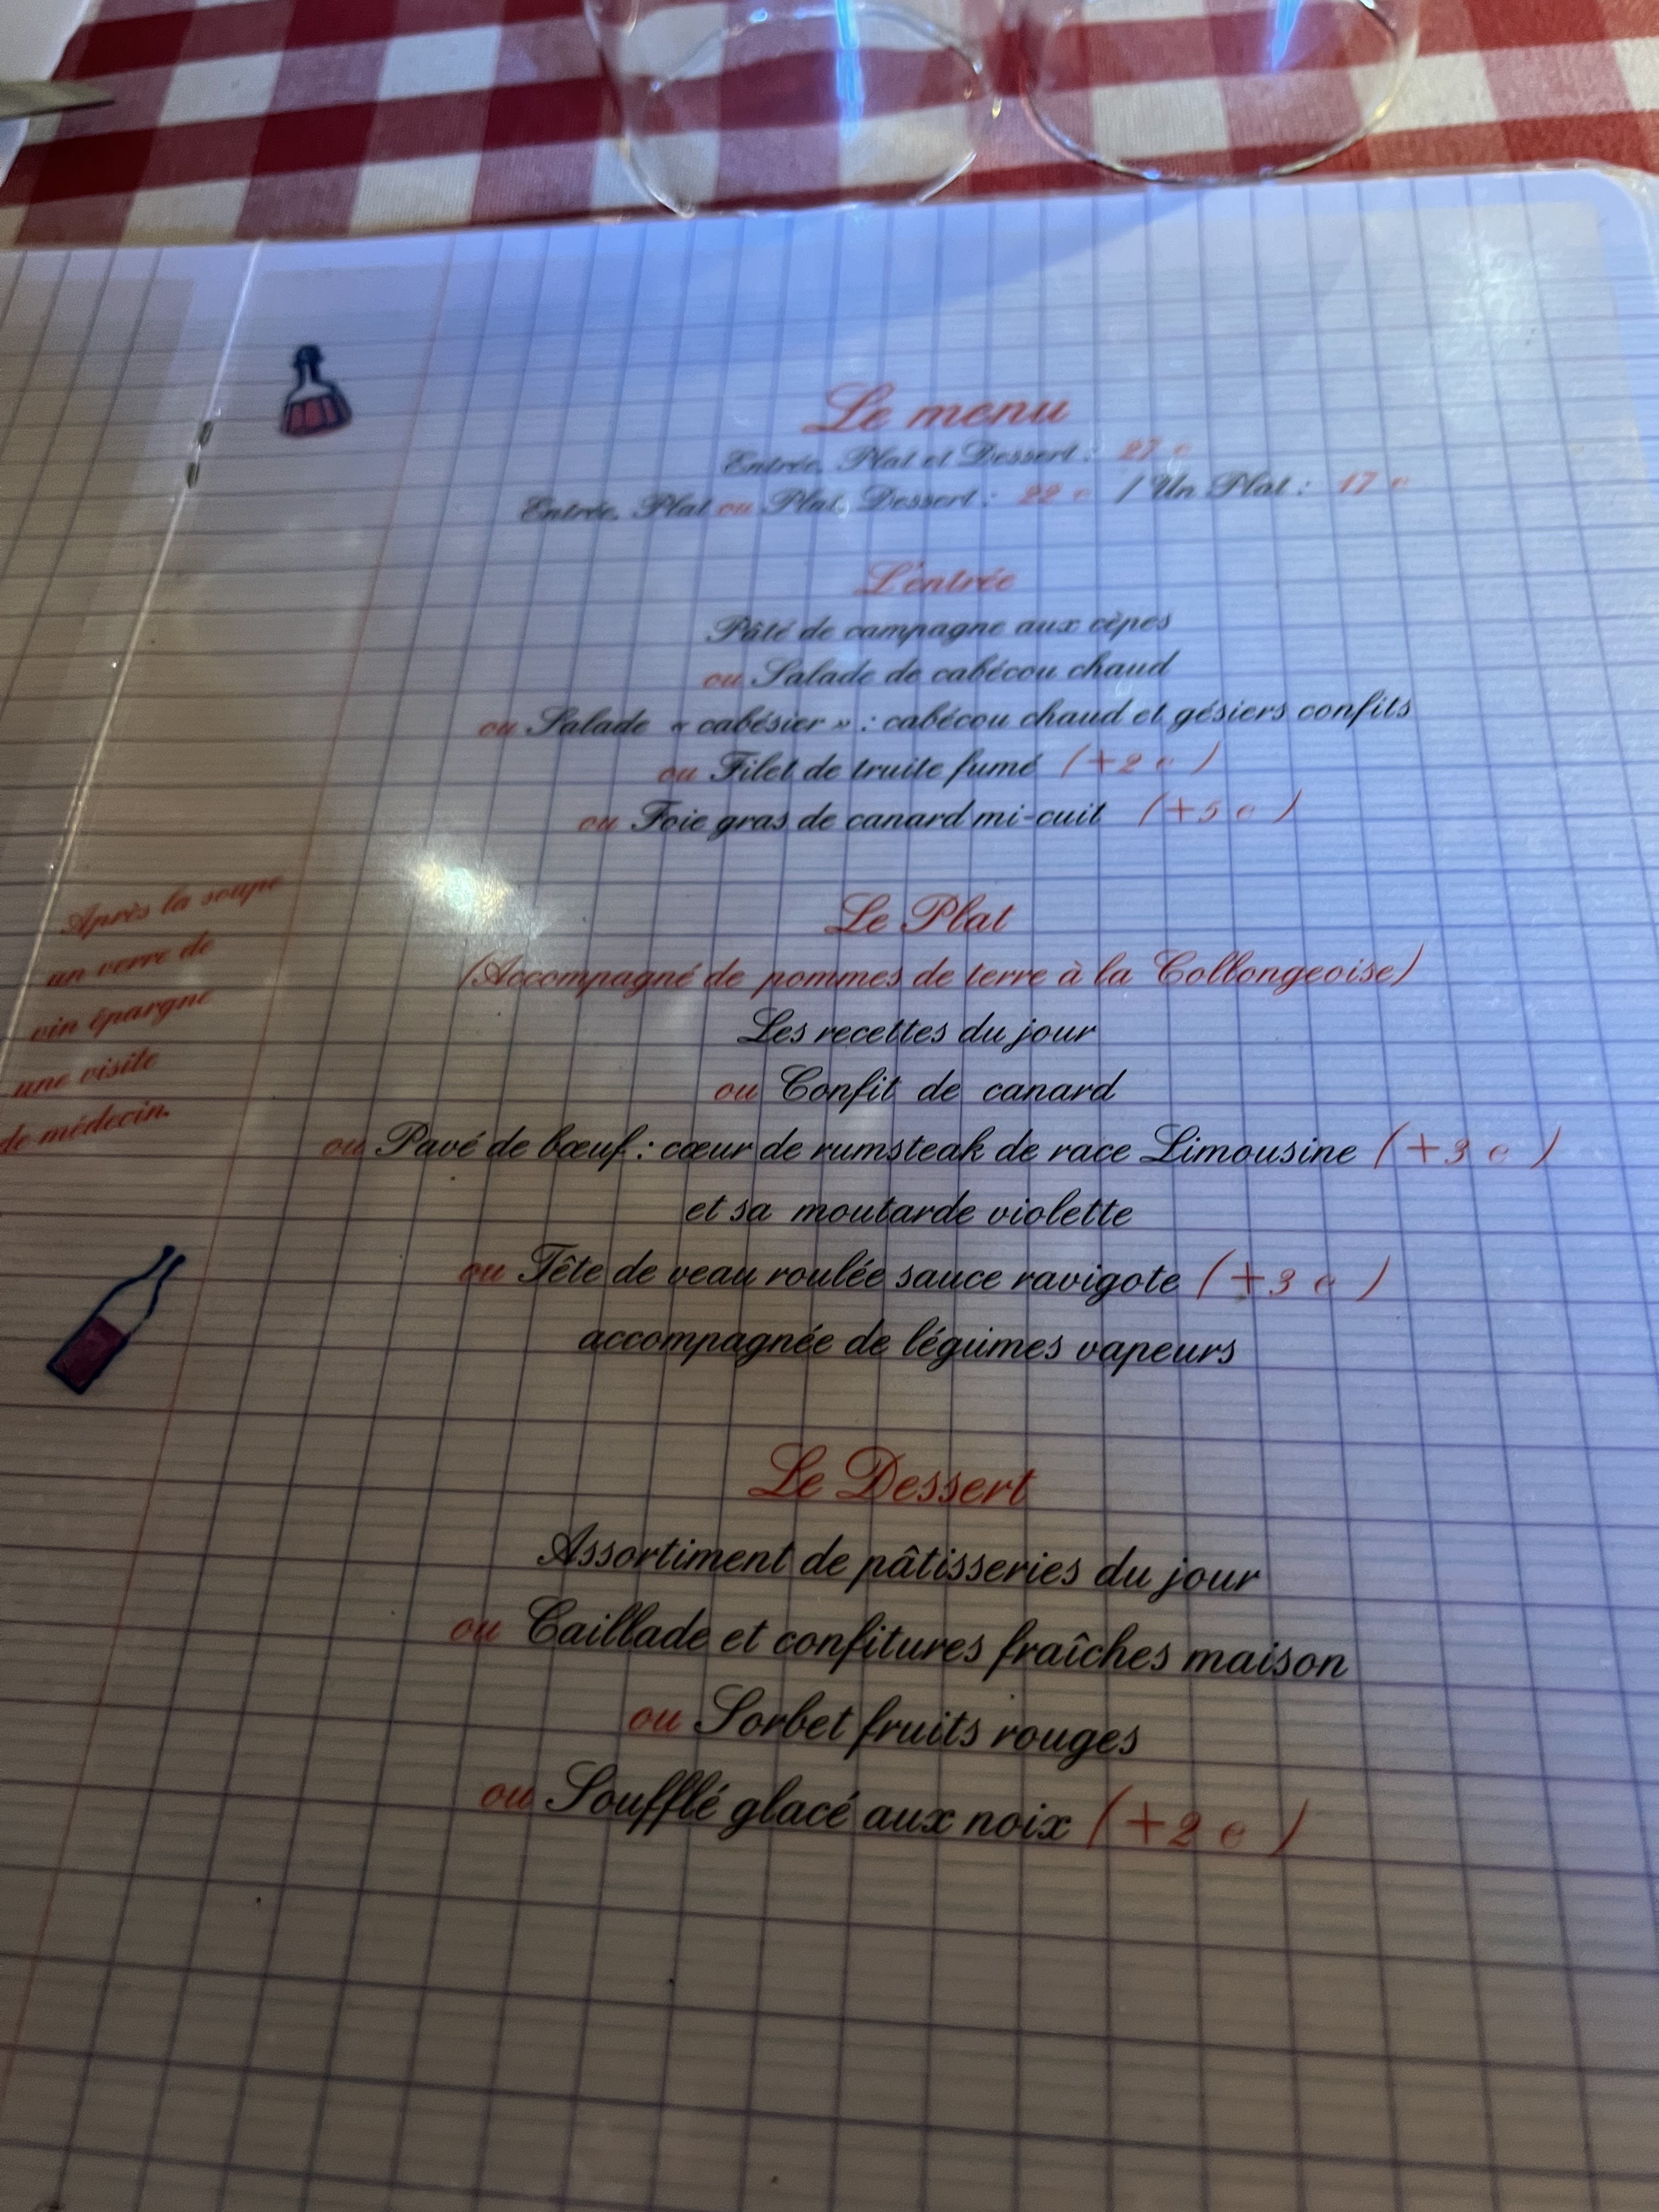 Le menu
Entrée, Plat et Dessert : 27 €
Entrée, Plat ou Plat, Dessert : 22 € / Un Plat : 17 €
L'entrée
Pâté de campagne aux cèpes
ou Salade de cabécou chaud
ou Salade « cabésier » : cabécou chaud et gésiers confits
ou Filet de truite fumé (+2 €)
ou Foie gras de canard mi-cuit (+5 €)
Le Plat
(Accompagné de pommes de terre à la Collongeoise)
Les recettes du jour
ou Confit de canard
ou Pavé de bœuf : cœur de rumsteak de race Limousine (+3 €)
et sa moutarde violette
ou Tête de veau roulée sauce ravigote (+3 €)
accompagnée de légumes vapeurs
Le Dessert
Assortiment de pâtisseries du jour
ou Caillade et confitures fraîches maison
ou Sorbet fruits rouges
ou Soufflé glacé aux noix (+2 €)
Après la soupe
un verre de
vin épargne
une visite
de médecin.